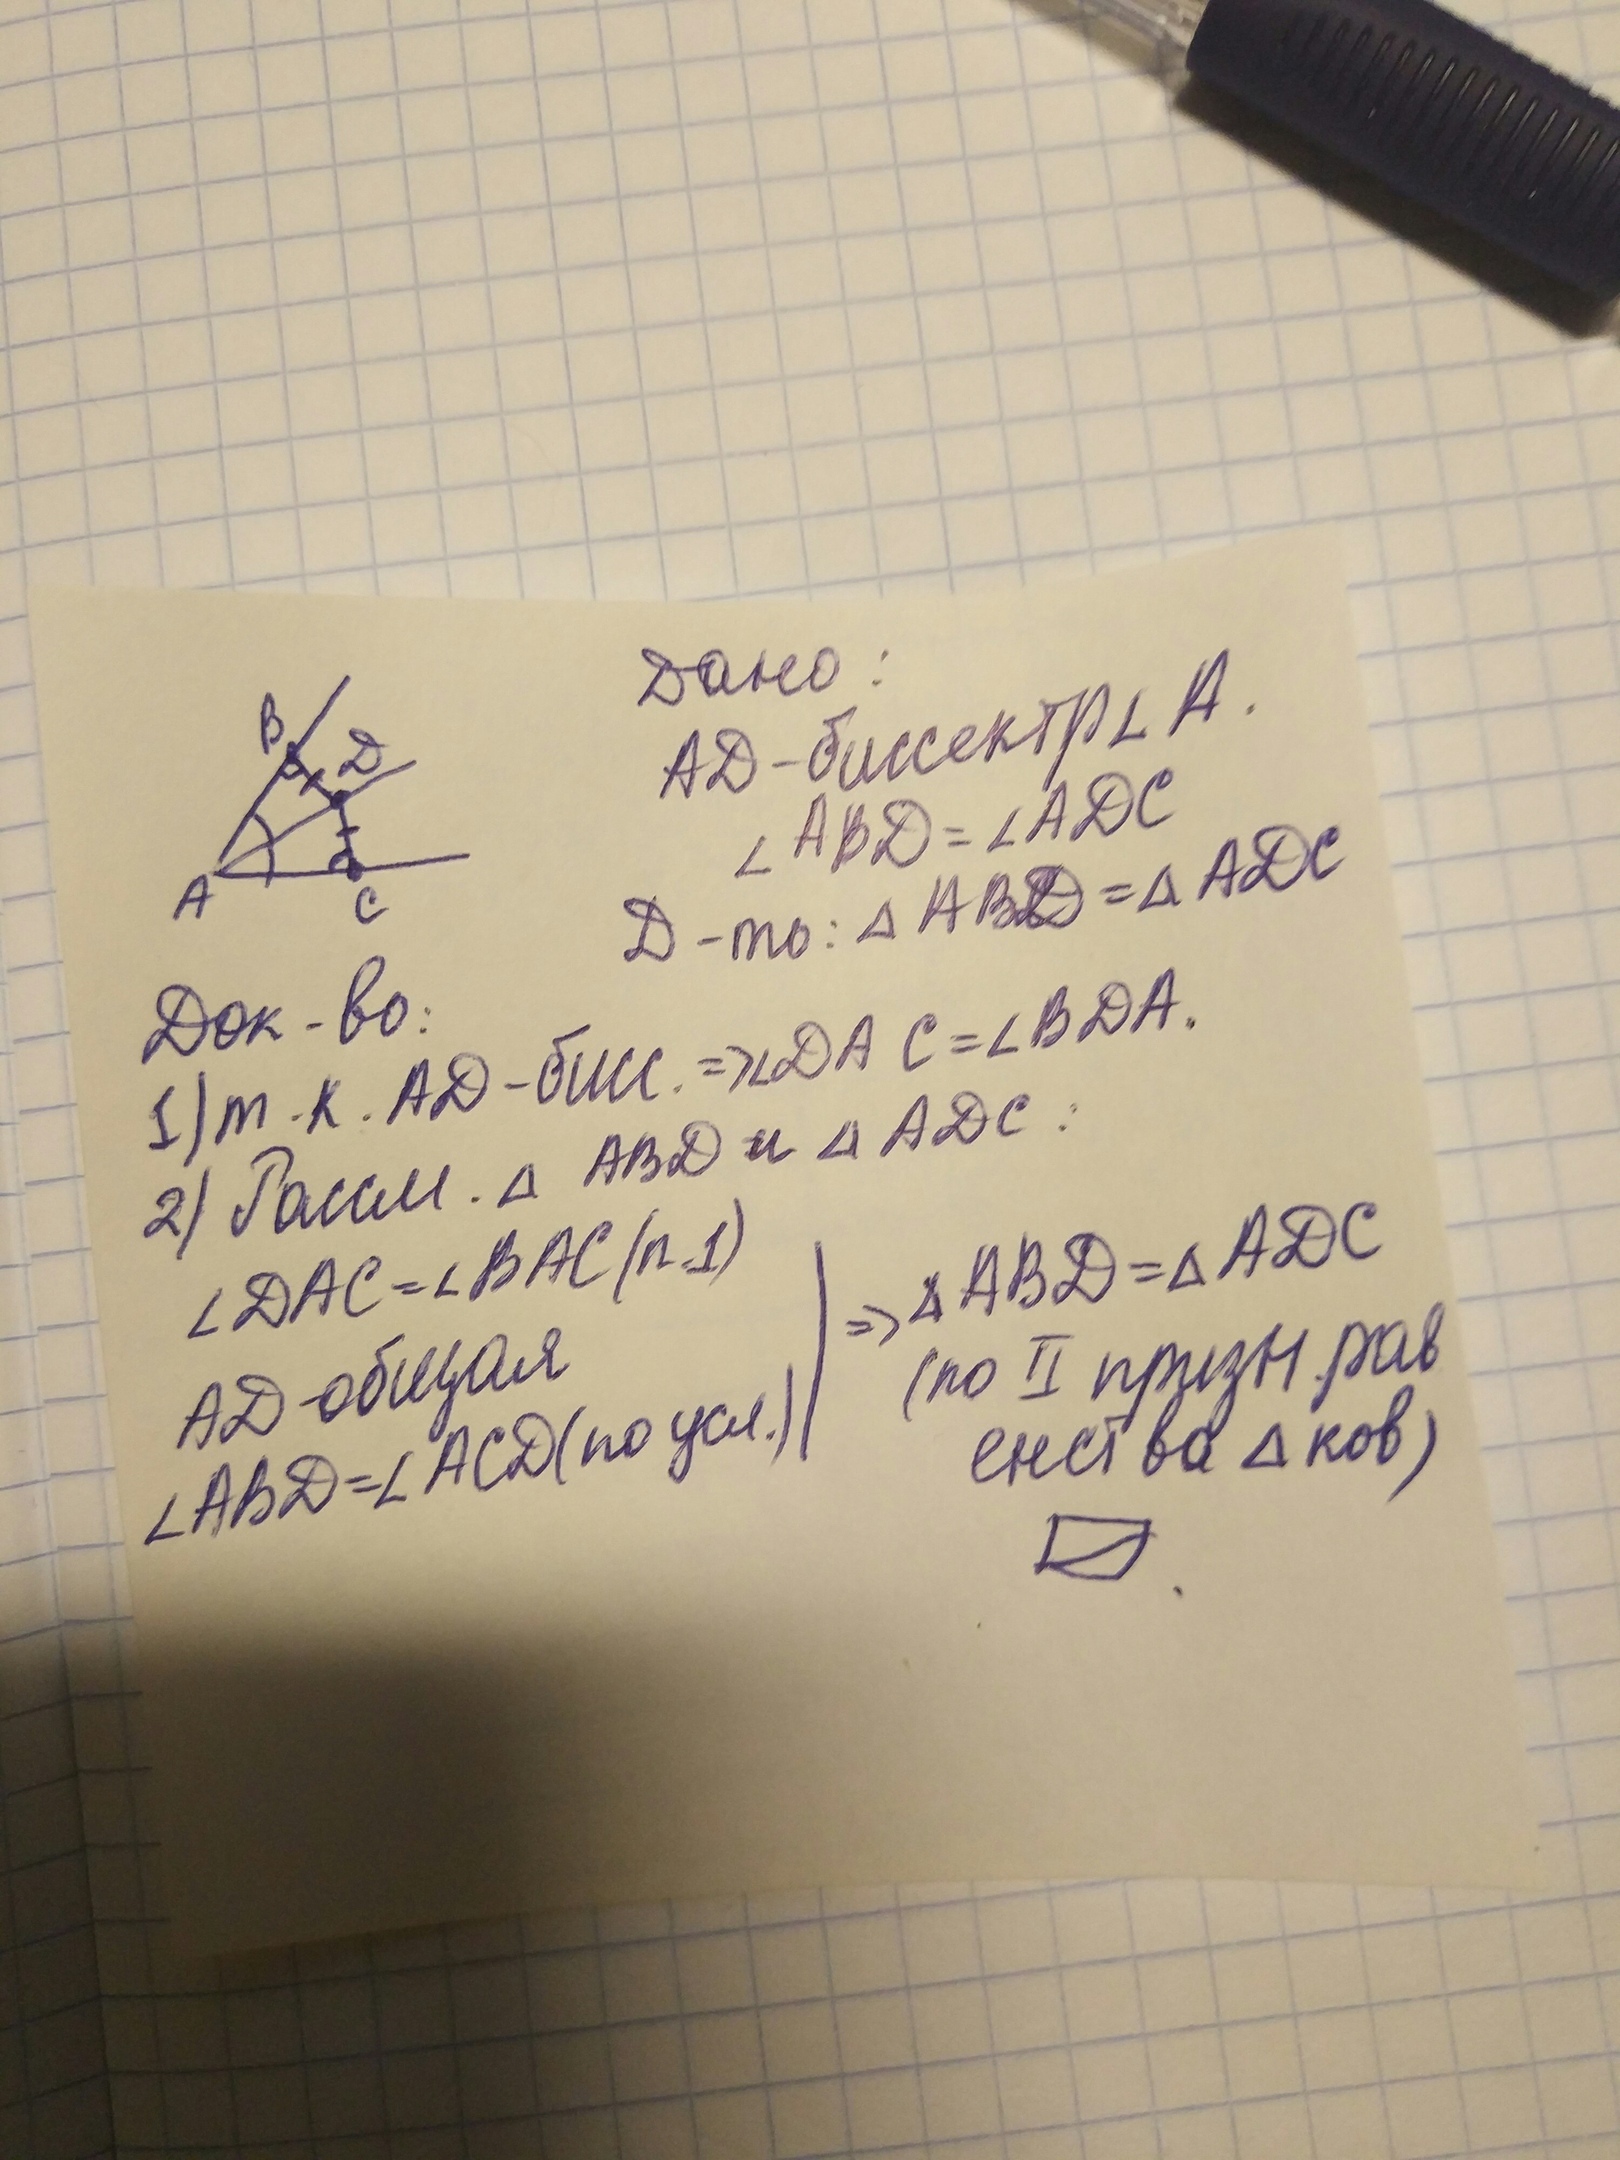 Дано:
B
D
AD-биссектр∠A.
∠ABD=∠ADC
A
C
Д-ть: △ABD=△ADC
Док-во:
1) т.к. AD-бисс. =>∠DAC=∠BDA.
2) Рассм. △ ABD и △ ADC:
∠DAC=∠BAC(п.1)
AD-общая
∠ABD=∠ACD(по усл.)
=>△ABD=△ADC
(по II призн. рав
енства △ков)